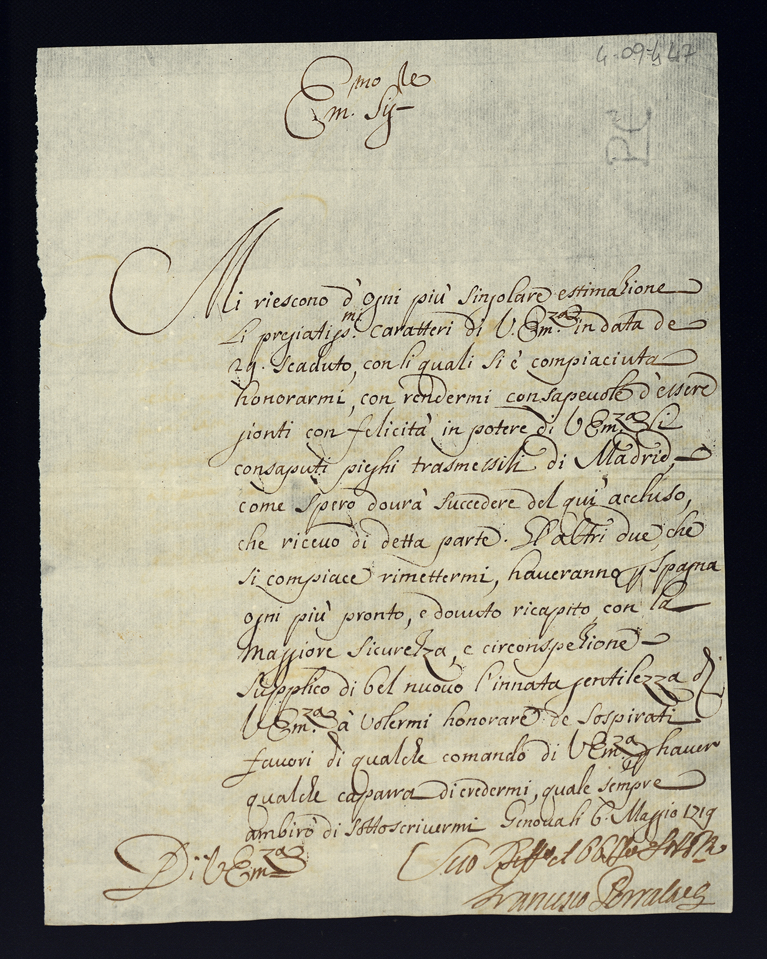 4-09-447
Em.mo Sig.re
Mi riescono d'ogni più singolare estimazione
Li pregiatiss.mi Caratteri di V. Em.za in data de
29. scaduto, con li quali si è compiaciuta
honorarmi, con rendermi consapevole d'essere
gionti con felicità in potere di V Em.za li
consaputi pieghi trasmessili di Madrid,
come spero dovrà succedere del qui accluso,
che ricevo di detta parte. Gl'altri due, che
si compiace rimettermi, haveranno p Spagna
ogni più pronto, e dovuto ricapito con la
maggiore sicurezza, e circonspezione
Supplico di bel nuovo l'innata gentilezza di
V Em.za à volermi honorare de sospirati
favori di qualche comando di V Em.za p haver
qualche caparra di credermi, quale sempre
ambirò di sottoscrivermi Genova li 6. Maggio 1719
Di V Em.za
Suo
Francisco